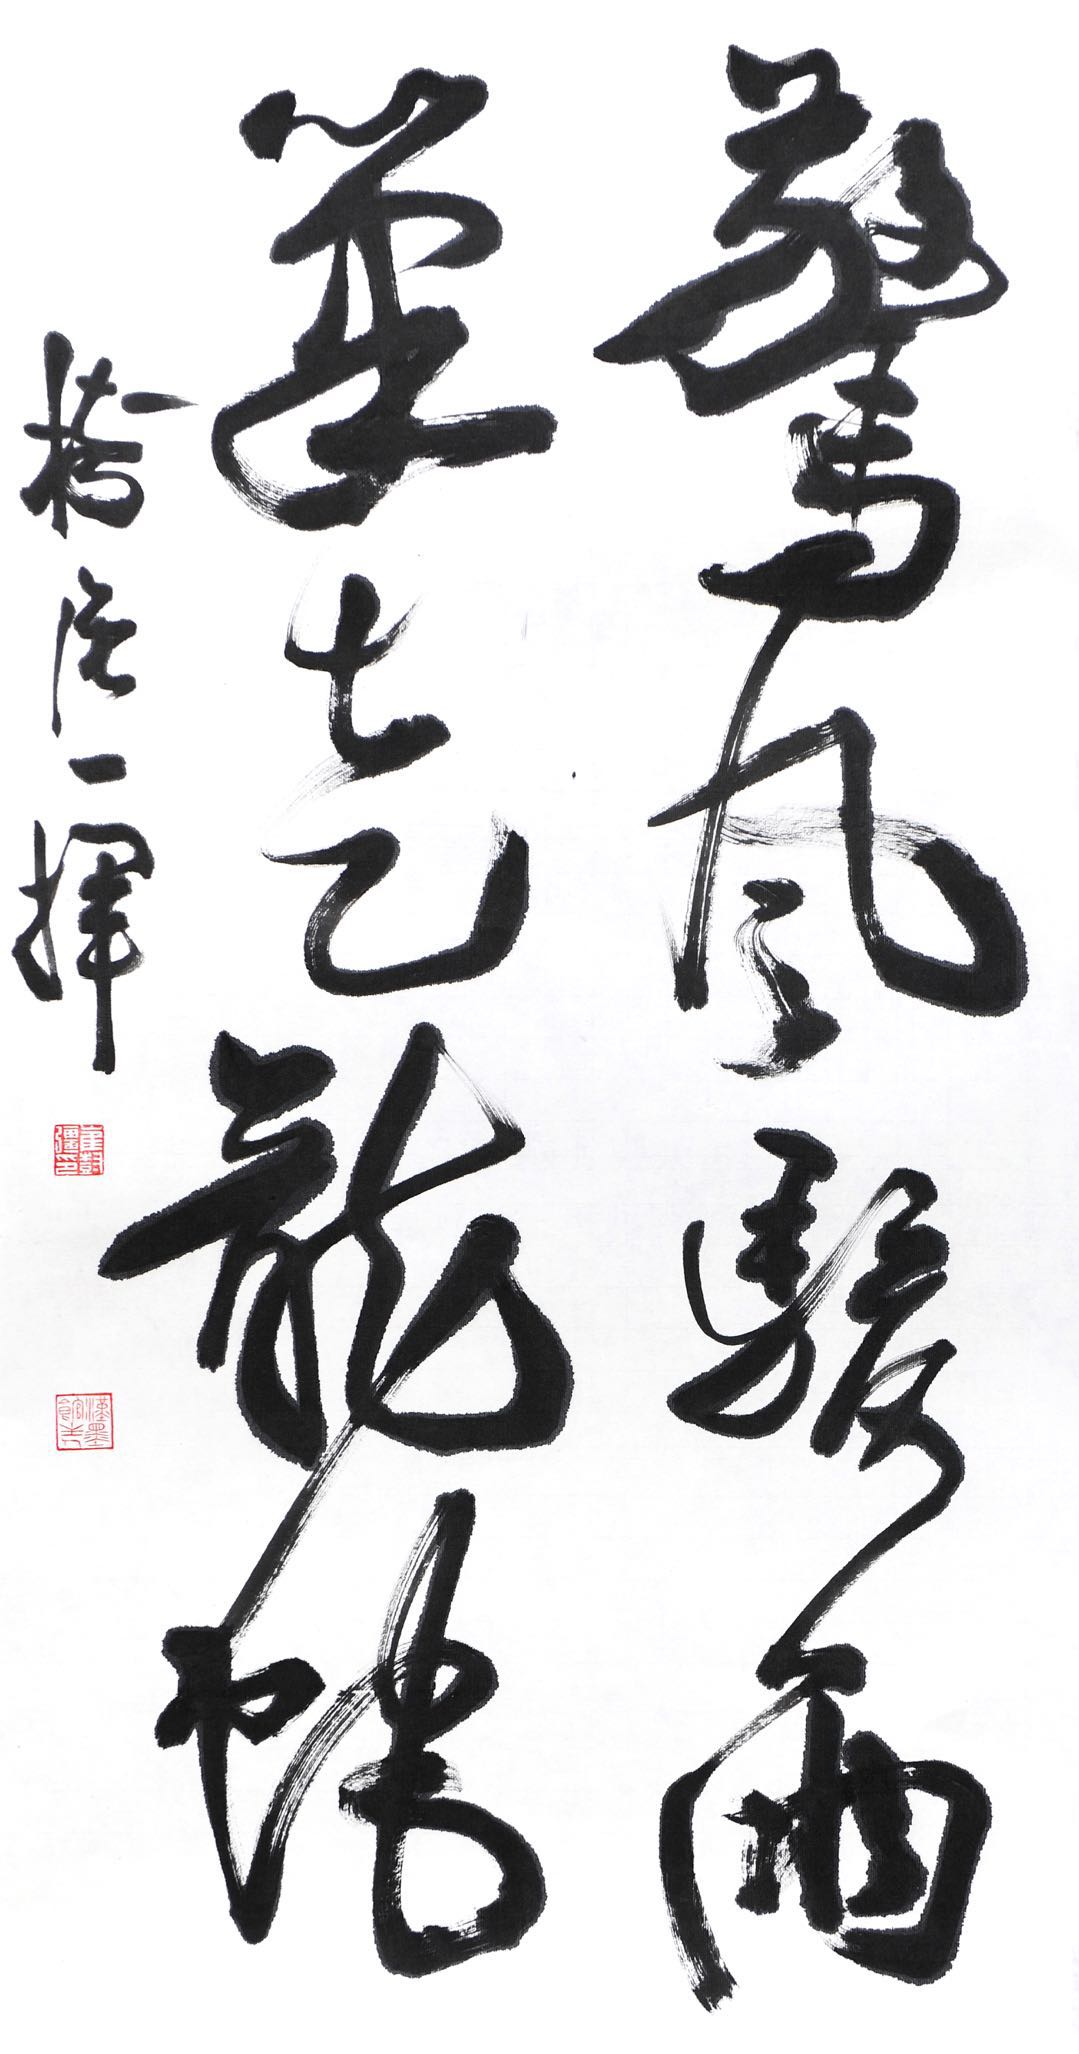 驚風驟雨
筆走龍蛇
一揮